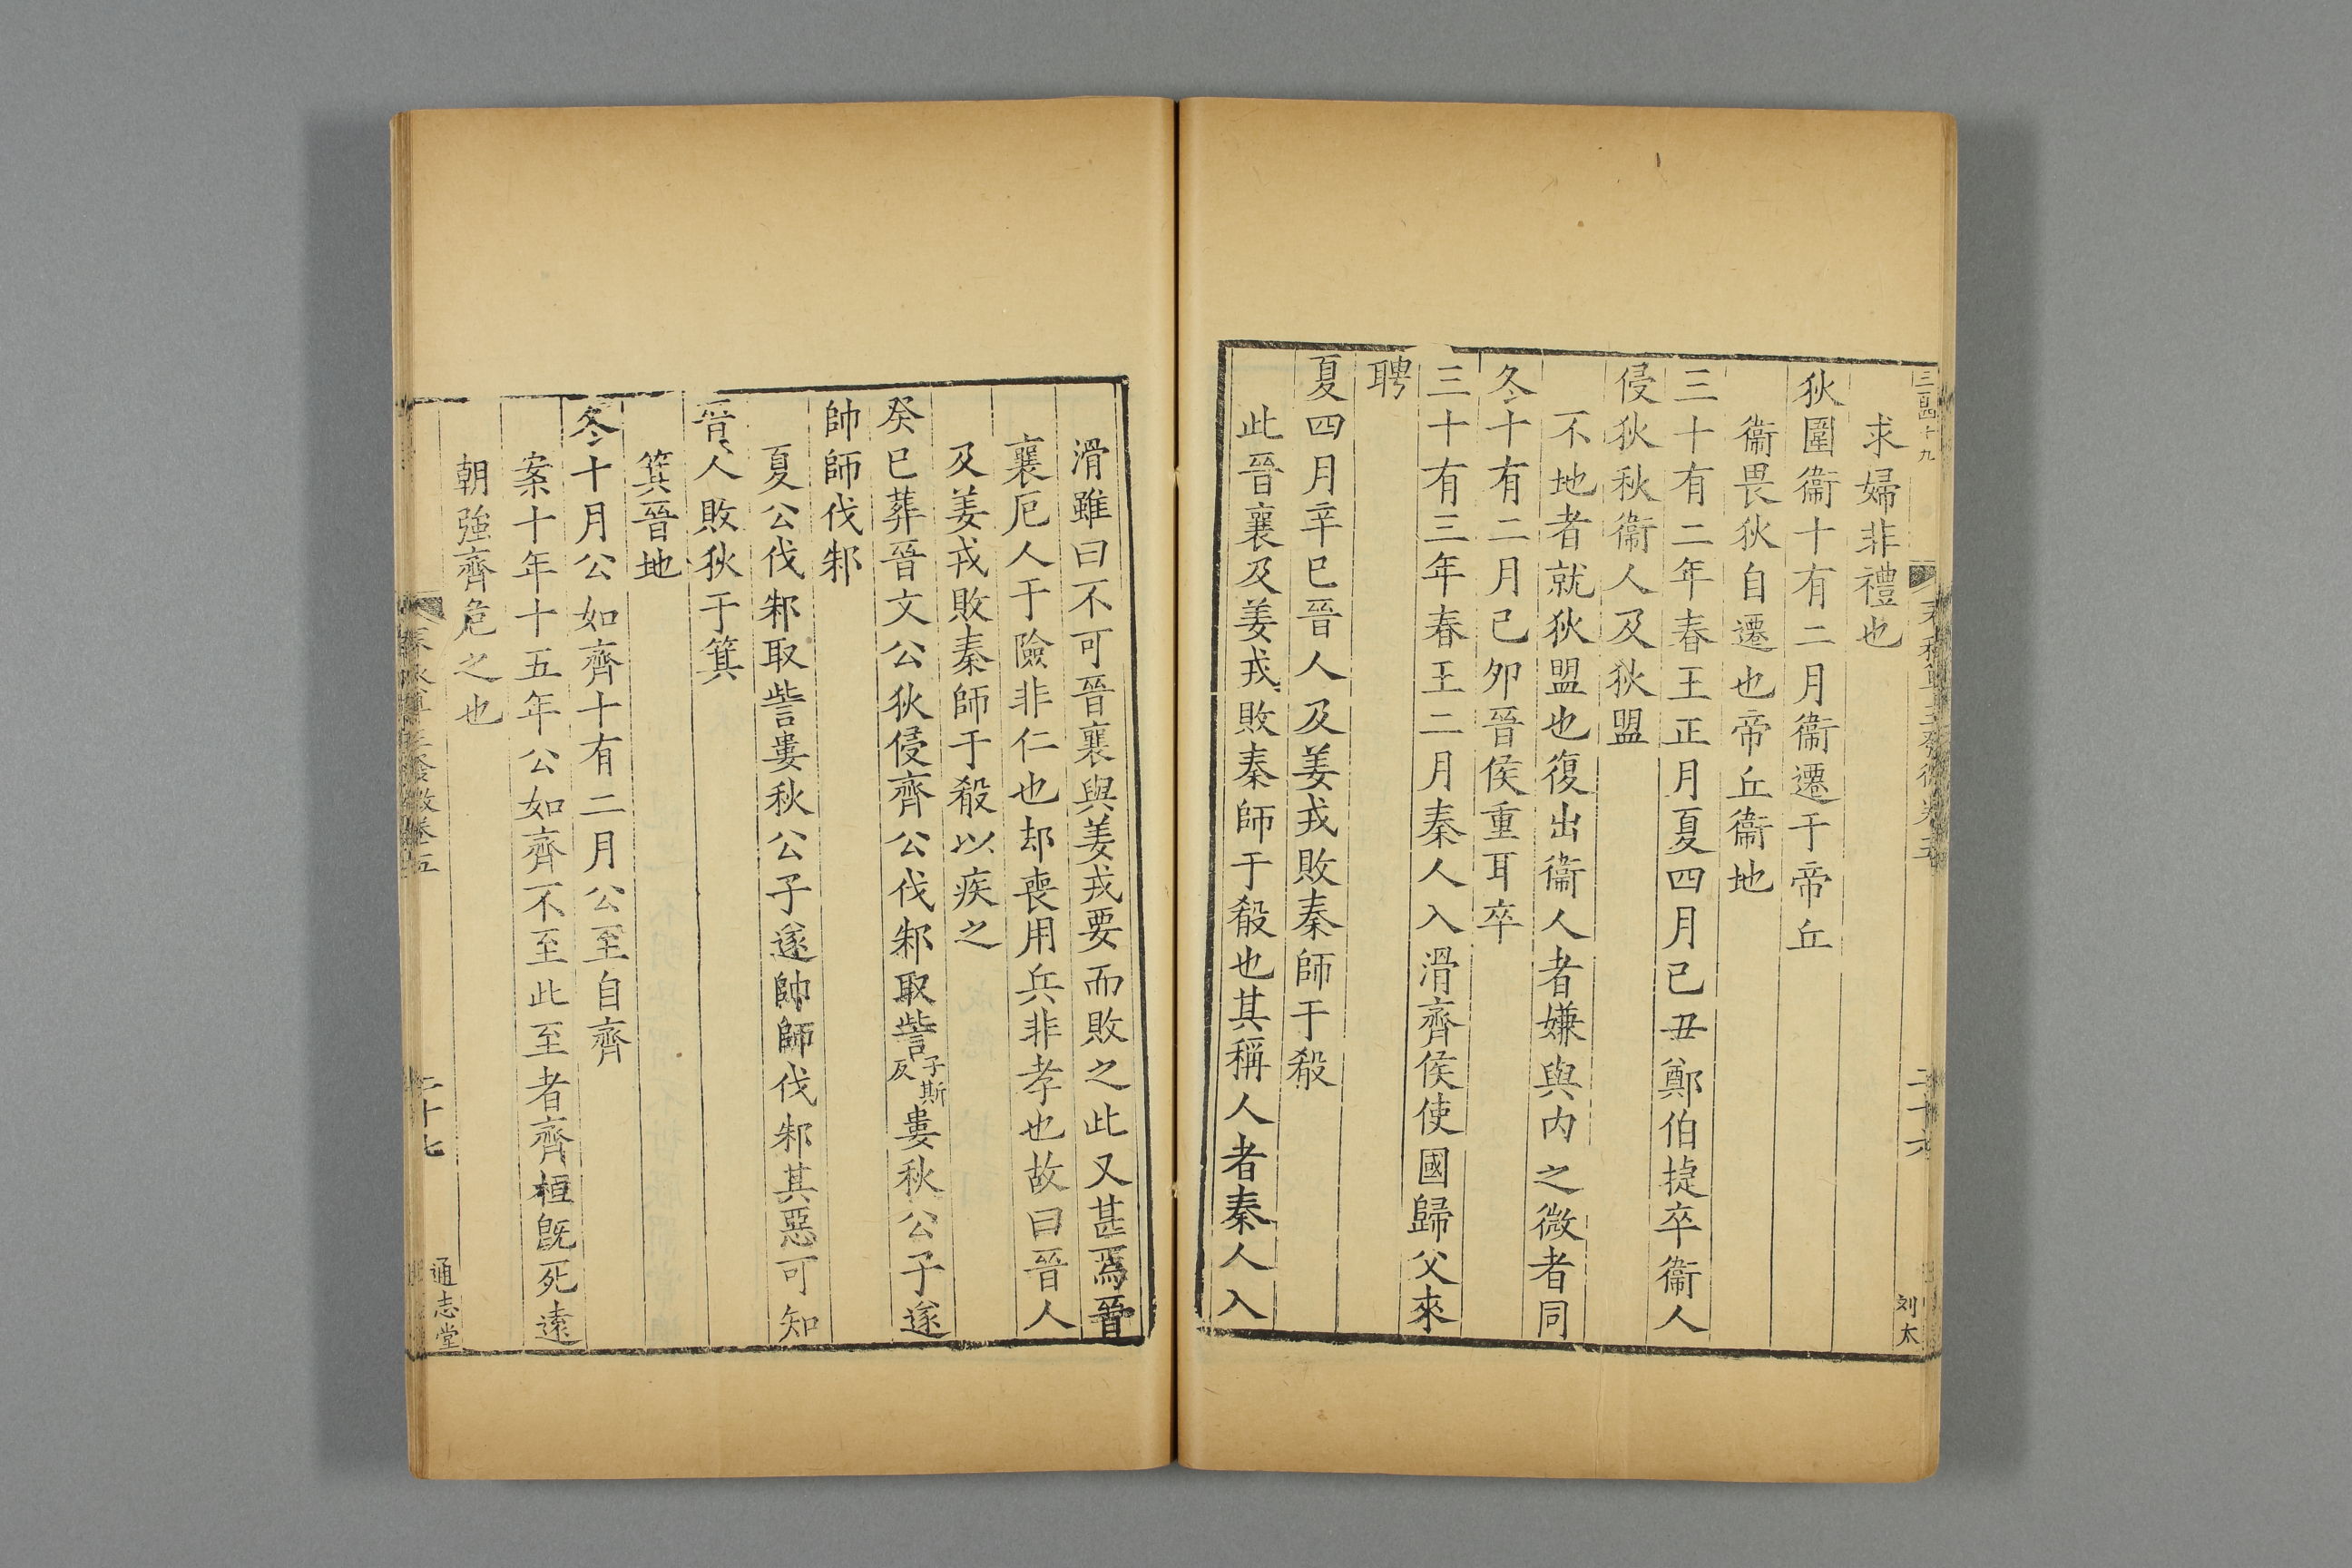 三百四十九
二十六
刘太
求婦非禮也
狄圍衞十有二月衞遷于帝丘
衞畏狄自遷也帝丘衞地
三十有二年春王正月夏四月己丑鄭伯捷卒衞人
侵狄秋衞人及狄盟
不地者就狄盟也復出衞人者嫌與内之微者同
冬十有二月己卯晉侯重耳卒
三十有三年春王二月秦人入滑齊侯使國歸父來
聘
夏四月辛巳晉人及姜戎敗秦師于殽
此晉襄及姜戎敗秦師于殽也其稱人者秦人入
滑雖曰不可晉襄與姜戎要而敗之此又甚焉晉
襄厄人于險非仁也却喪用兵非孝也故曰晉人
及姜戎敗秦師于殽以疾之
癸巳葬晉文公狄侵齊公伐邾取訾子斯反婁秋公子遂
帥師伐邾
夏公伐邾取訾婁秋公子遂帥師伐邾其惡可知
晉人敗狄于箕
箕晉地
冬十月公如齊十有二月公至自齊
案十年十五年公如齊不至此至者齊桓旣死遠
朝強齊危之也
二十七
通志堂